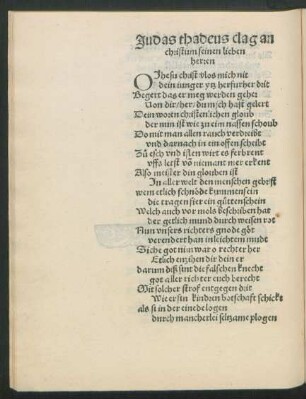 Judas thadeus clag an
christum seinen lieben
herren
O Jhesu christ vlos mich nit
dein iunger yetz herfurher drit
Begert das er meg werden gehet
Von dir/her/du mich hast gelert
Dein wort in christenlichen gloub
der nun ist wie zu ein nassen schoub
Do mit man allen rauch verdreibt
vnd darnach in ein offen scheibt
Zů esch vnd isten wirt es ferbrent
vffs letst vō niemant mer erkent
Also meister din glouben ist
In aller welt den menschen gebrist
wem etlich schnöde kummen sein
die tragen hier ein gůtten schein
Welch auch vor mols beschriben hat
der getlich mund durch weisen rot
Nun vnsers richters gnode göt
verendert han in leichtem můdt
Siche got nim war o rechter her
Etlich entzihen dir dein er
darum diß sint die falschen knecht
got aller richter euch berecht
Mit solcher strof entgegen dūt
Wie er sin kindren botschaft schickt
als sī in der einede logen
durch mancherlei seltzame plogen